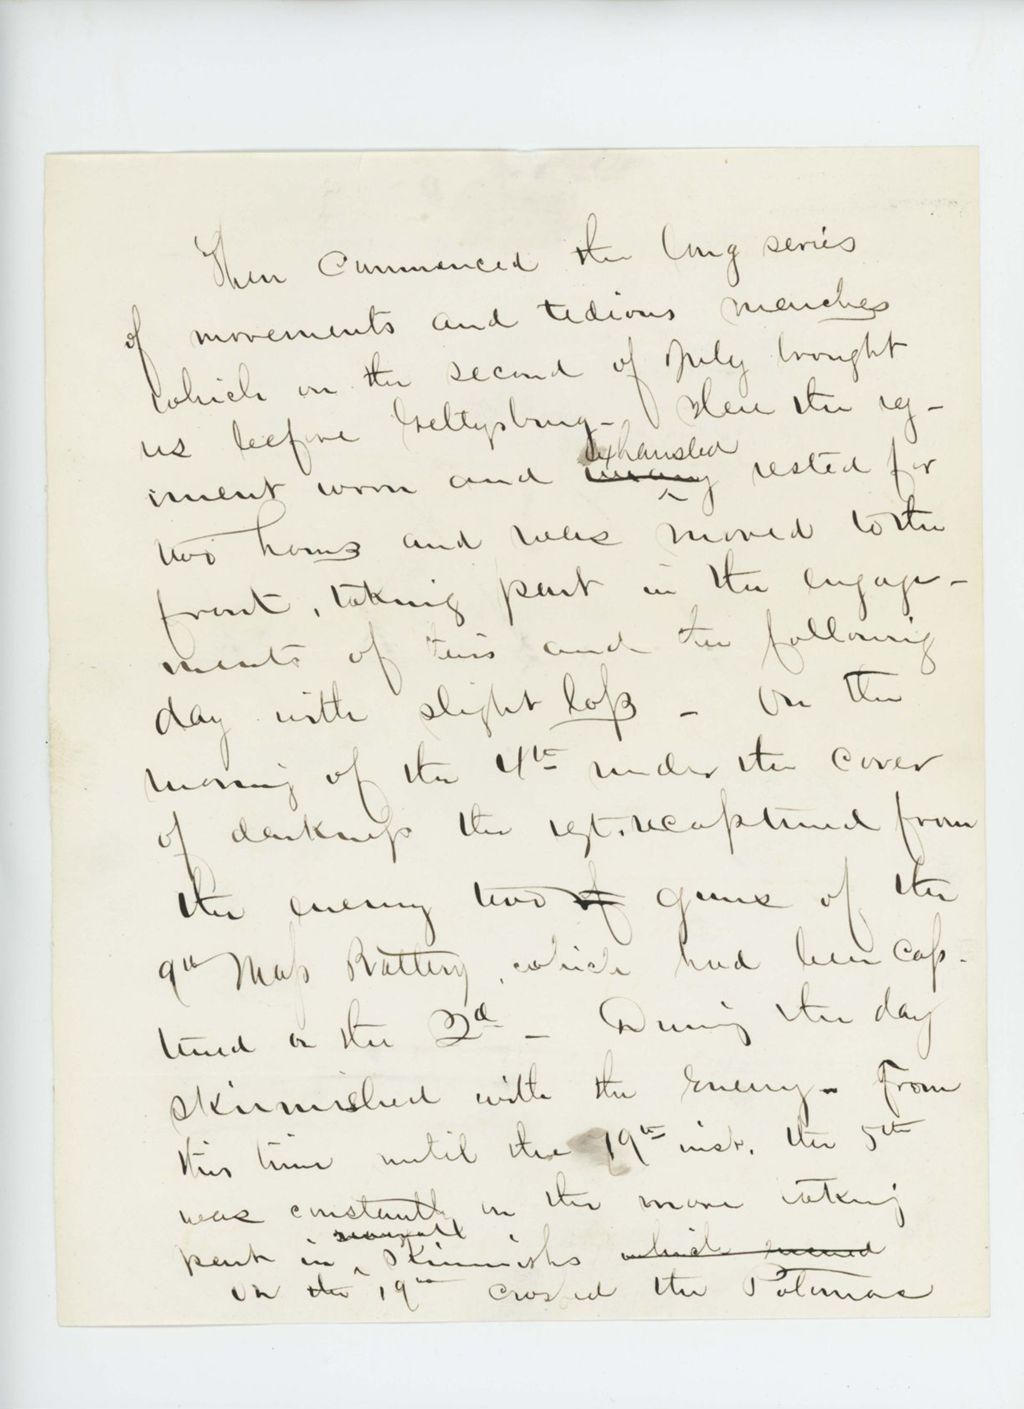 Then commenced the long series
of movements and tedious marches
which on the second of July brought
us before Gettysburg - Here the reg-
iment worn and exhausted rested for
two hours and was moved to the
front, taking part in the engage-
ments of this and the following
day with slight loss - On the
morning of the 4th under the cover
of darkness the regt. recaptured from
the enemy two of guns of the
9th Mass Battery, which had been cap-
tured on the 2d - During the day
skirmished with the Enemy - From
this time until the 19th inst. the 5th
was constantly on the move taking
part in several skirmishs which
On the 19th crossed the Potomac